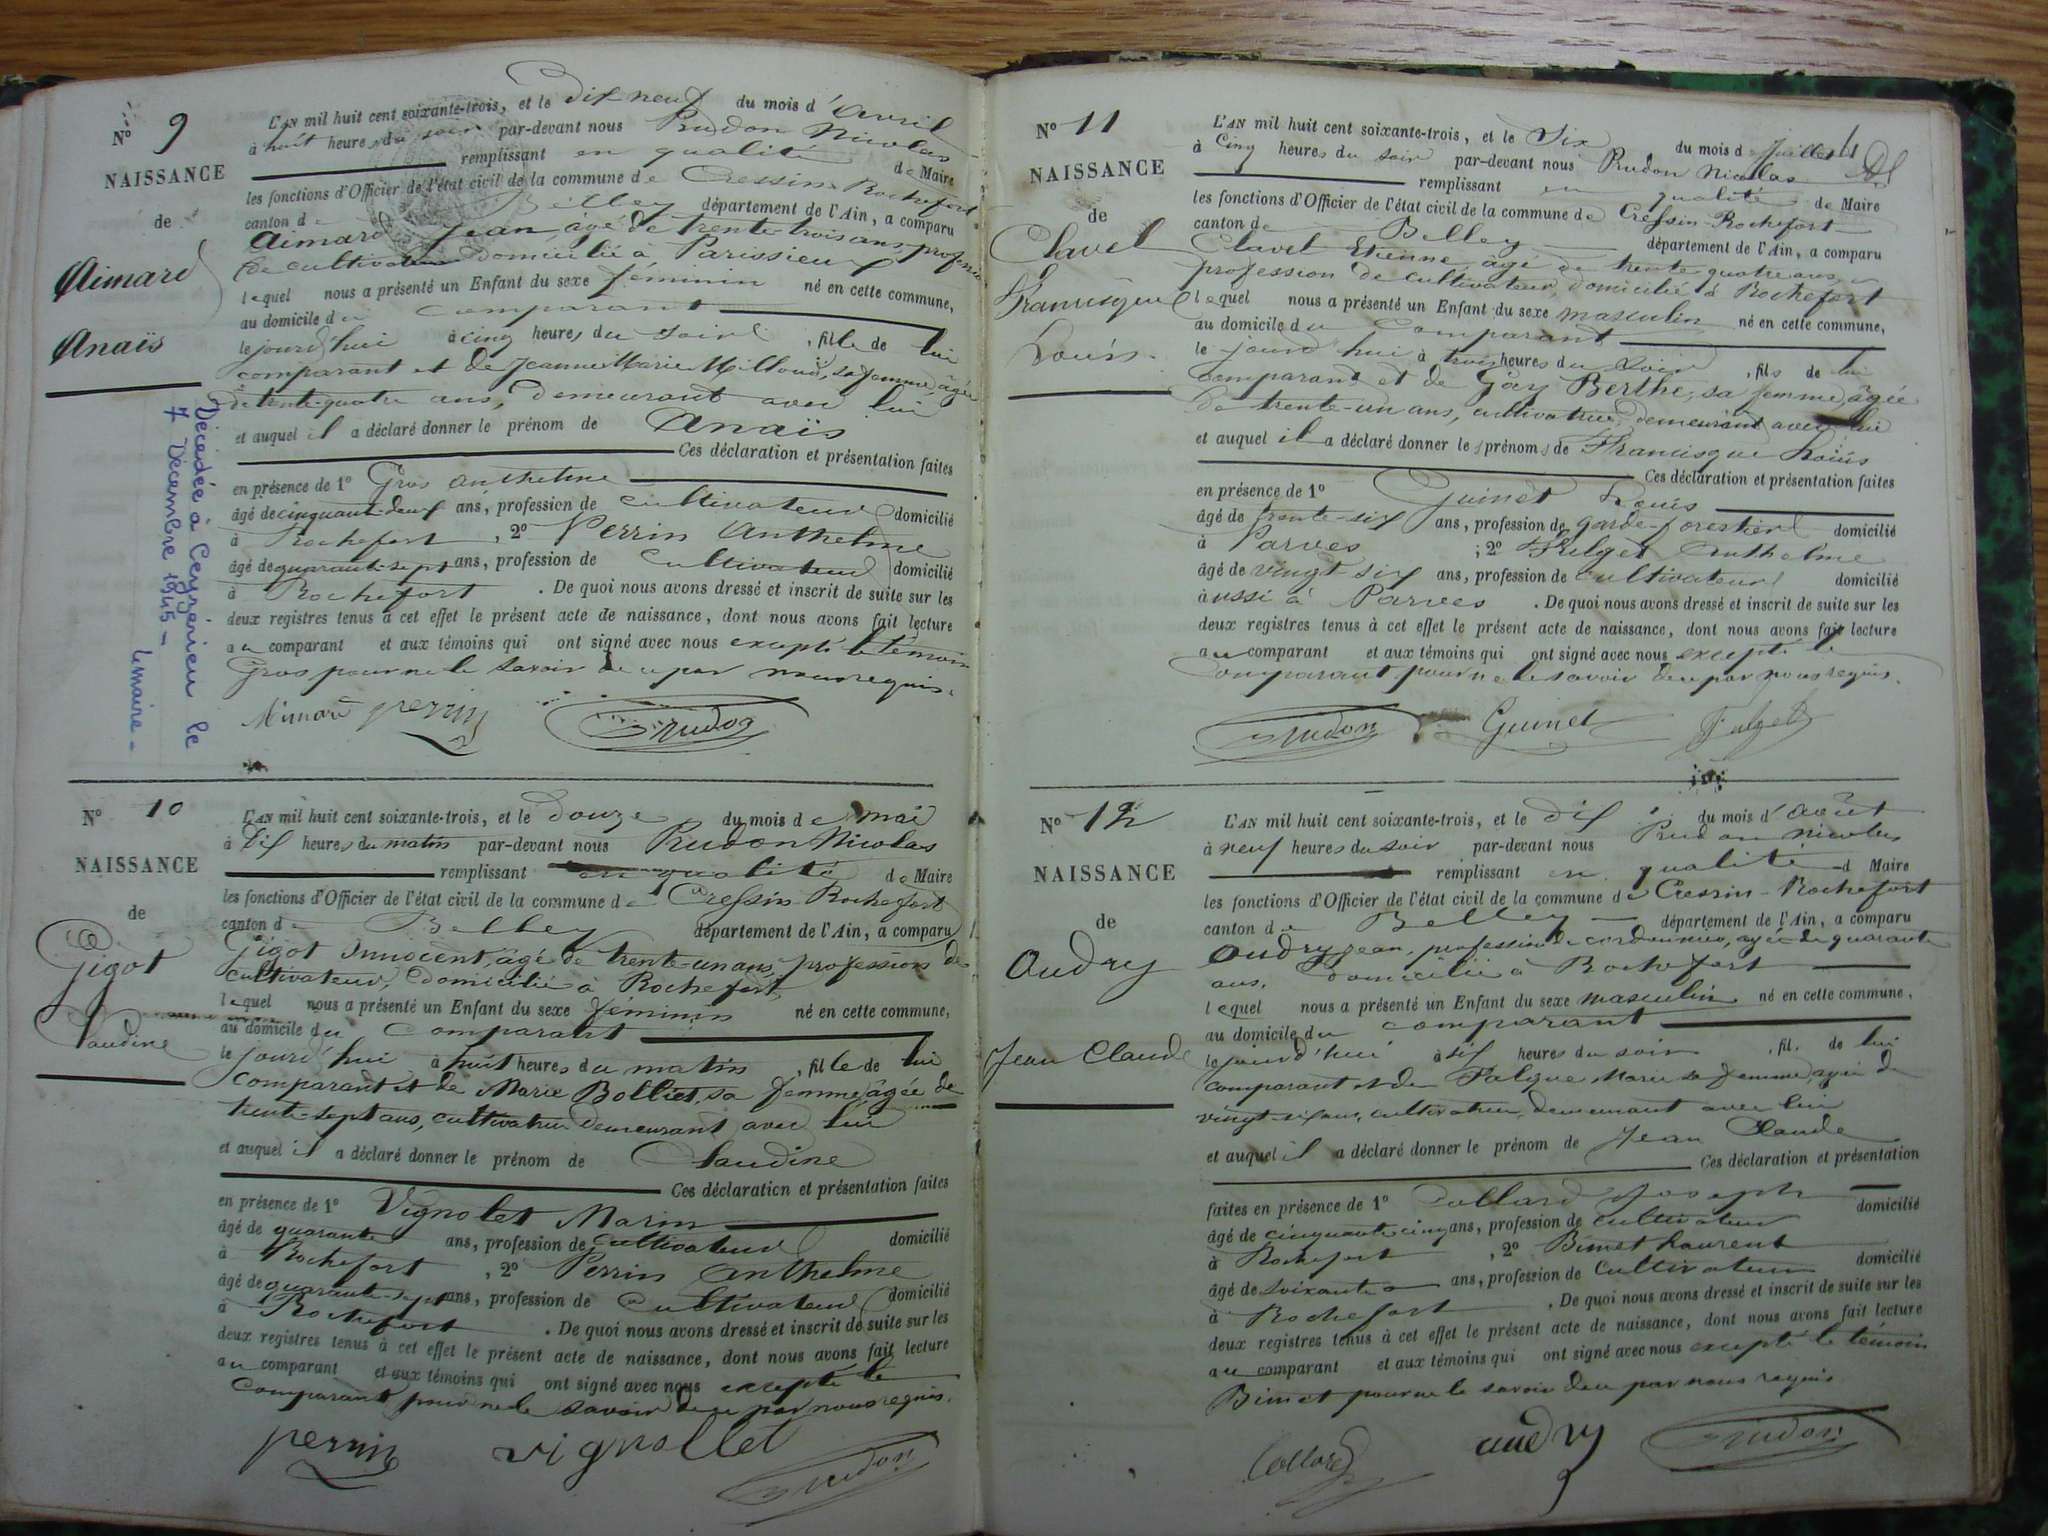 N° 9
NAISSANCE
de
Aimard
Anaïs
Décédée à Ceyzérieu le
7 Décembre 1945 -
le maire -
L'AN mil huit cent soixante-trois, et le Dix neuf du mois d'Avril
à huit heures du soir par-devant nous Prudon Nicolas
remplissant en qualité de Maire
les fonctions d'Officier de l'état civil de la commune de Cressin-Rochefort
canton de Belley département de l'Ain, a comparu
Aimard Jean, âgé de trente-trois ans, profession
de cultivateur domicilié à Parissieu
lequel nous a présenté un Enfant du sexe féminin né en cette commune,
au domicile du comparant
le jourd'hui à cinq heures du soir, fille de lui
comparant et de Jeanne Marie Milloud, sa femme, âgée
de trente-quatre ans, demeurant avec lui
et auquel il a déclaré donner le prénom de Anaïs
Ces déclaration et présentation faites
en présence de 1° Gros Anthelme
âgé de cinquante-deux ans, profession de cultivateur domicilié
à Rochefort, 2° Perrin Anthelme
âgé de quarante-sept ans, profession de cultivateur domicilié
à Rochefort. De quoi nous avons dressé et inscrit de suite sur les
deux registres tenus à cet effet le présent acte de naissance, dont nous avons fait lecture
au comparant et aux témoins qui ont signé avec nous excepté le témoin
Gros pour ne le savoir de ce par nous requis.
Aimard perrin Prudon
N° 10
NAISSANCE
de
Gigot
Claudine
L'AN mil huit cent soixante-trois, et le Douze du mois de mai
à Dix heures du matin par-devant nous Prudon Nicolas
remplissant en qualité de Maire
les fonctions d'Officier de l'état civil de la commune de Cressin-Rochefort
canton de Belley département de l'Ain, a comparu
Gigot Innocent, âgé de trente-un ans, profession de
cultivateur, domicilié à Rochefort,
lequel nous a présenté un Enfant du sexe féminin né en cette commune,
au domicile du comparant
le jourd'hui à huit heures du matin, fille de lui
comparant et de Marie Bolliet, sa femme, âgée de
trente-sept ans, cultivatrice demeurant avec lui
et auquel il a déclaré donner le prénom de Claudine
Ces déclaration et présentation faites
en présence de 1° Vignolet Marin
âgé de quarante ans, profession de cultivateur domicilié
à Rochefort, 2° Perrin Anthelme
âgé de quarante-sept ans, profession de cultivateur domicilié
à Rochefort. De quoi nous avons dressé et inscrit de suite sur les
deux registres tenus à cet effet le présent acte de naissance, dont nous avons fait lecture
au comparant et aux témoins qui ont signé avec nous excepté le
comparant pour ne le savoir de ce par nous requis.
perrin vignollet Prudon
N° 11
NAISSANCE
de
Clavel
Francisque
Louis
L'AN mil huit cent soixante-trois, et le Six du mois de Juillet
à Cinq heures du soir par-devant nous Prudon Nicolas
remplissant en qualité de Maire
les fonctions d'Officier de l'état civil de la commune de Cressin-Rochefort
canton de Belley département de l'Ain, a comparu
Clavel Etienne âgé de trente-quatre ans,
profession de cultivateur, domicilié à Rochefort
lequel nous a présenté un Enfant du sexe masculin né en cette commune,
au domicile du comparant
le jourd'hui à trois heures du soir, fils de lui
comparant et de Göy Berthe, sa femme, âgée
de trente-un ans, cultivatrice, demeurant avec lui
et auquel il a déclaré donner les prénoms de Francisque Louis
Ces déclaration et présentation faites
en présence de 1° Guinet Louis
âgé de trente-six ans, profession de garde-forestier domicilié
à Parves; 2° Fulget Anthelme
âgé de vingt-six ans, profession de cultivateur domicilié
aussi à Parves. De quoi nous avons dressé et inscrit de suite sur les
deux registres tenus à cet effet le présent acte de naissance, dont nous avons fait lecture
au comparant et aux témoins qui ont signé avec nous excepté le
comparant pour ne le savoir de ce par nous requis.
Prudon Guinet Fulget
N° 12
NAISSANCE
de
Audry
Jean Claude
L'AN mil huit cent soixante-trois, et le Dix du mois d'août
à neuf heures du soir par-devant nous Prudon Nicolas
remplissant en qualité d Maire
les fonctions d'Officier de l'état civil de la commune de Cressin-Rochefort
canton de Belley département de l'Ain, a comparu
Audry Jean, profession de cordonnier, âgé de quarante
ans, domicilié à Rochefort
lequel nous a présenté un Enfant du sexe masculin né en cette commune,
au domicile du comparant
le jourd'hui à six heures du soir, fil de lui
comparant et de Falque Marie sa femme, âgée de
vingt-six ans, cultivatrice, demeurant avec lui
et auquel il a déclaré donner le prénom de Jean Claude
Ces déclaration et présentation
faites en présence de 1° Collard Joseph domicilié
âgé de cinquante-cinq ans, profession de cultivateur
à Rochefort, 2° Bimet Laurent
âgé de soixante ans, profession de cultivateur domicilié
à Rochefort. De quoi nous avons dressé et inscrit de suite sur les
deux registres tenus à cet effet le présent acte de naissance, dont nous avons fait lecture
au comparant et aux témoins qui ont signé avec nous excepté le témoin
Bimet pour ne le savoir de ce par nous requis.
Collard audry Prudon